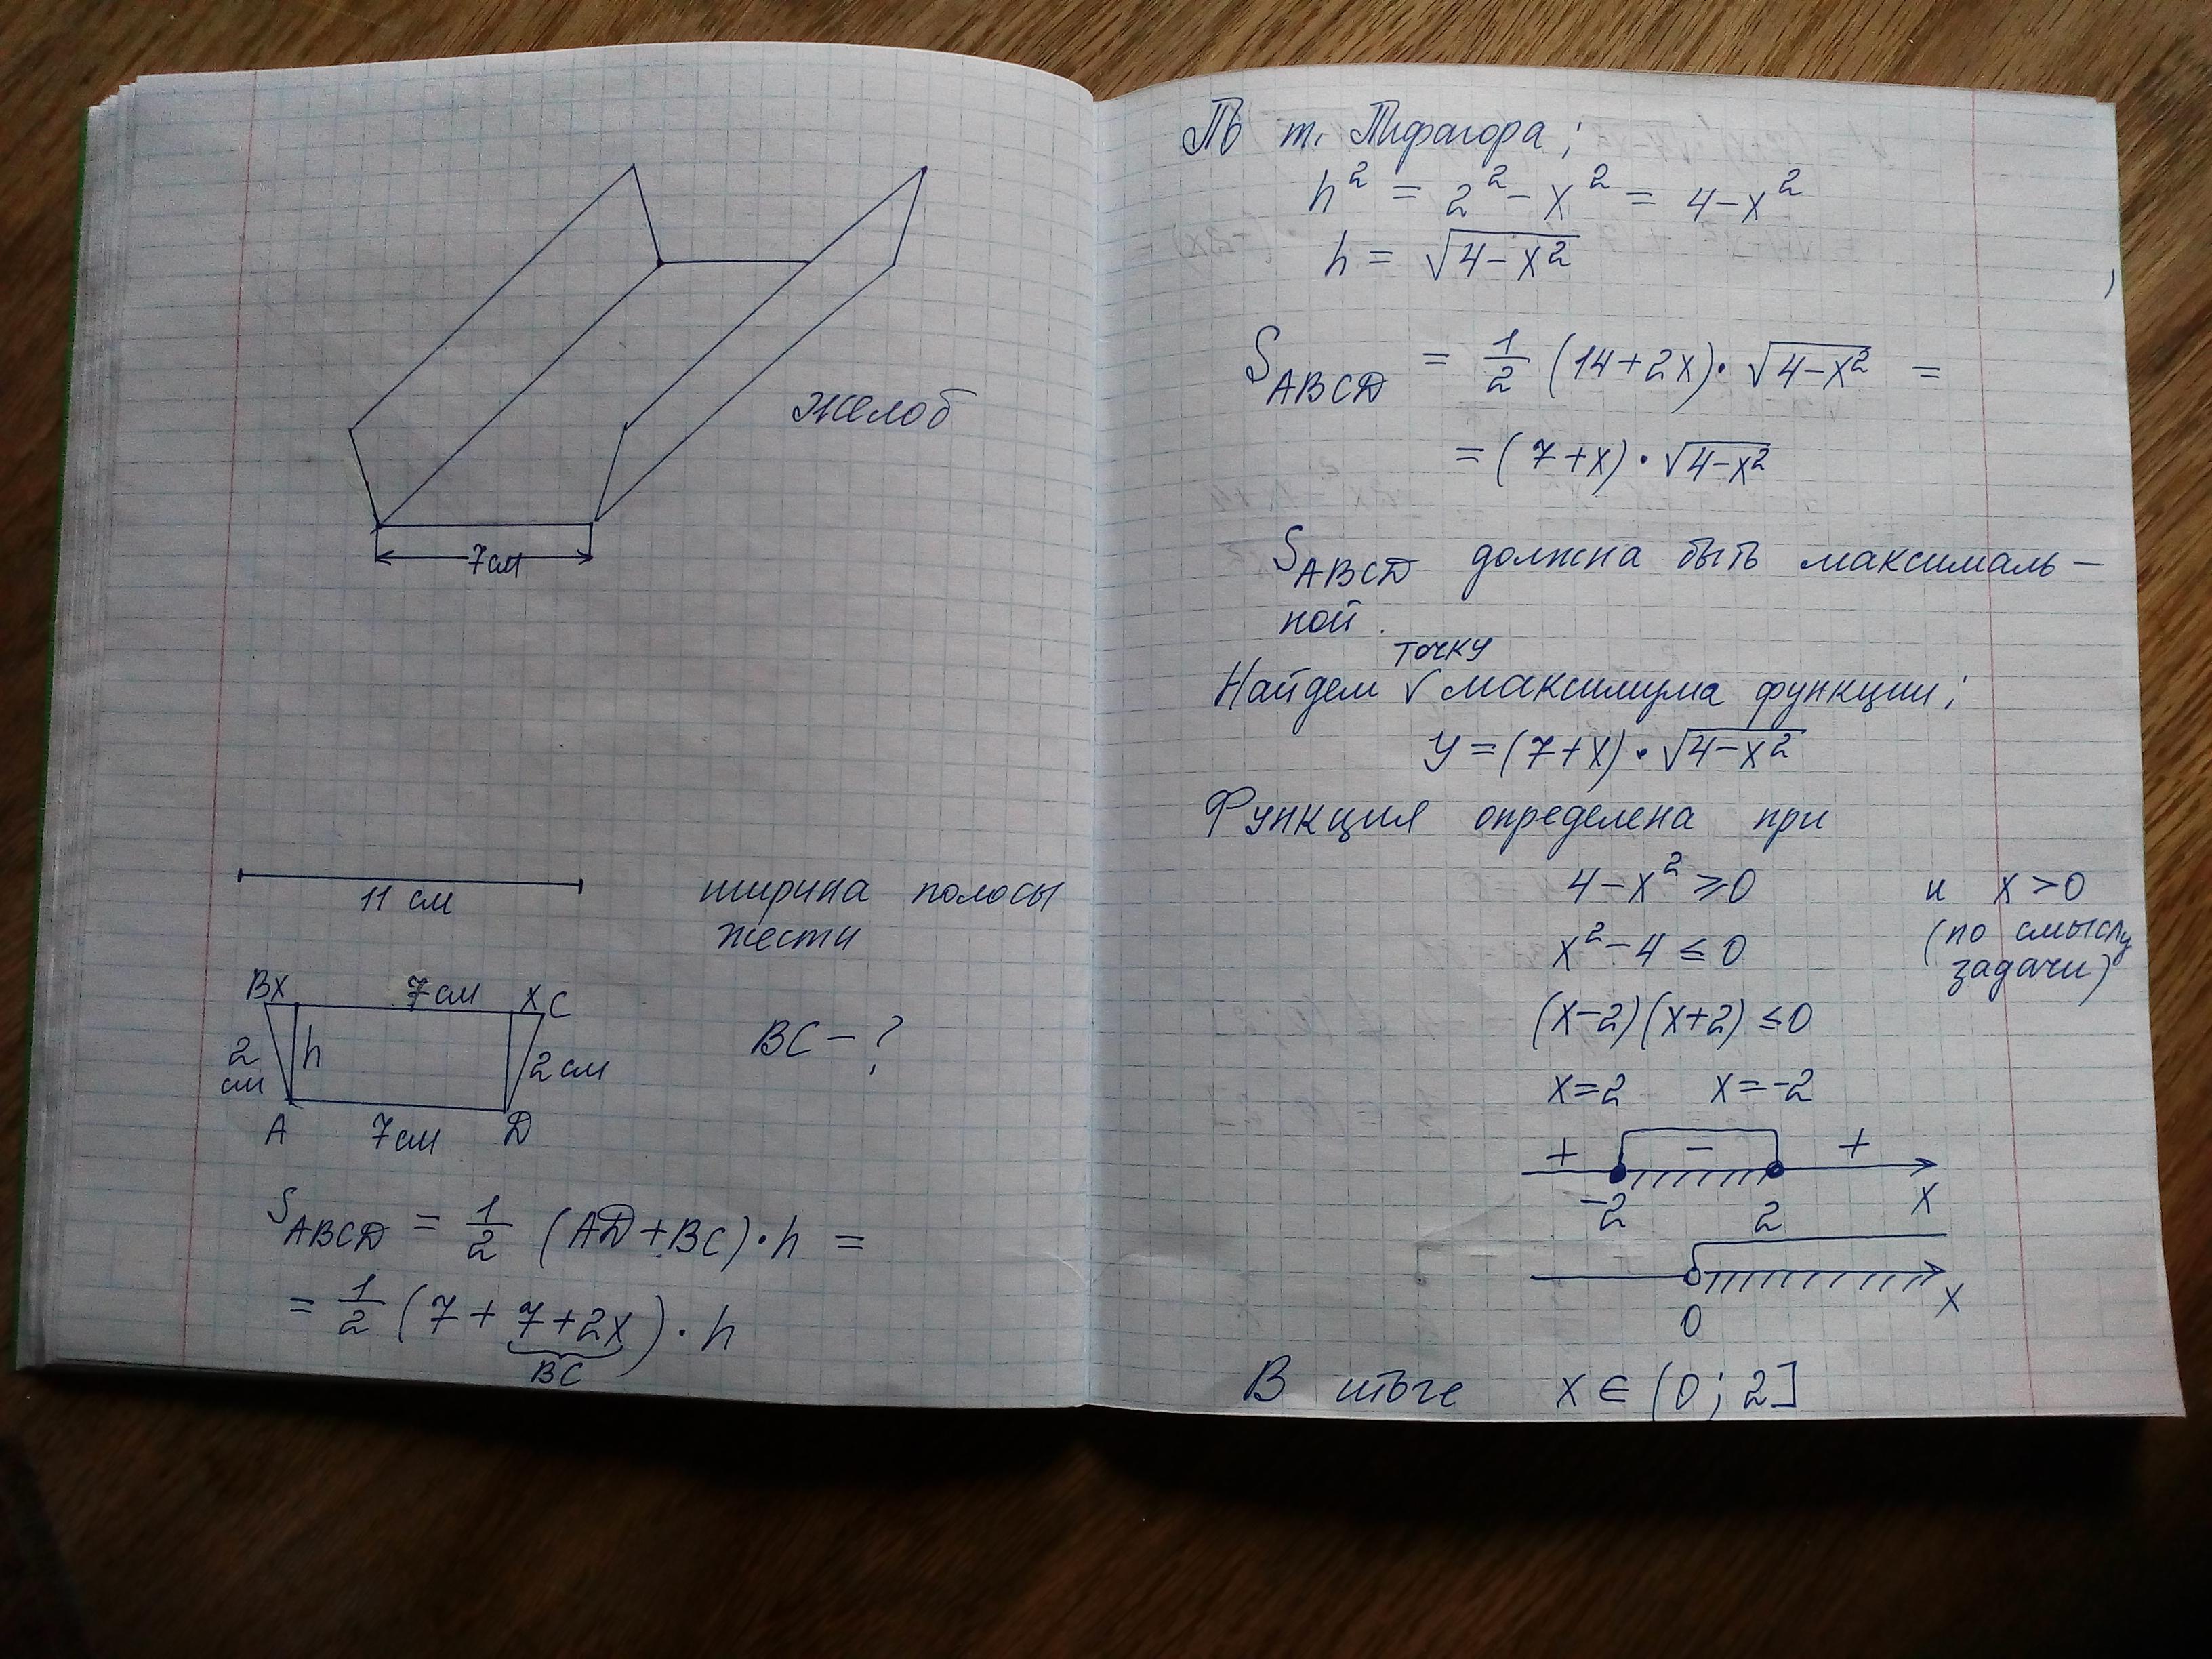 желоб
7см
11 см
ширина полосы
жести
Bx 7см x C
2
см
h
2 см
BC – ?
A 7см D
S_ABCD = 1/2 (AD + BC) · h =
= 1/2 (7 + 7 + 2x) · h
BC
По т. Пифагора:
h² = 2² – x² = 4 – x²
h = √(4 – x²)
S_ABCD = 1/2 (14 + 2x) · √(4 – x²) =
= (7 + x) · √(4 – x²)
S_ABCD должна быть максималь –
ной.
точку
Найдем √ максимума функции:
y = (7 + x) · √(4 – x²)
Функция определена при
4 – x² ⩾ 0 и x > 0
x² – 4 ≤ 0 (по смыслу
задачи)
(x – 2)(x + 2) ≤ 0
x = 2 x = -2
+ – +
-2 2 x
0 x
В итоге x ∈ (0; 2]